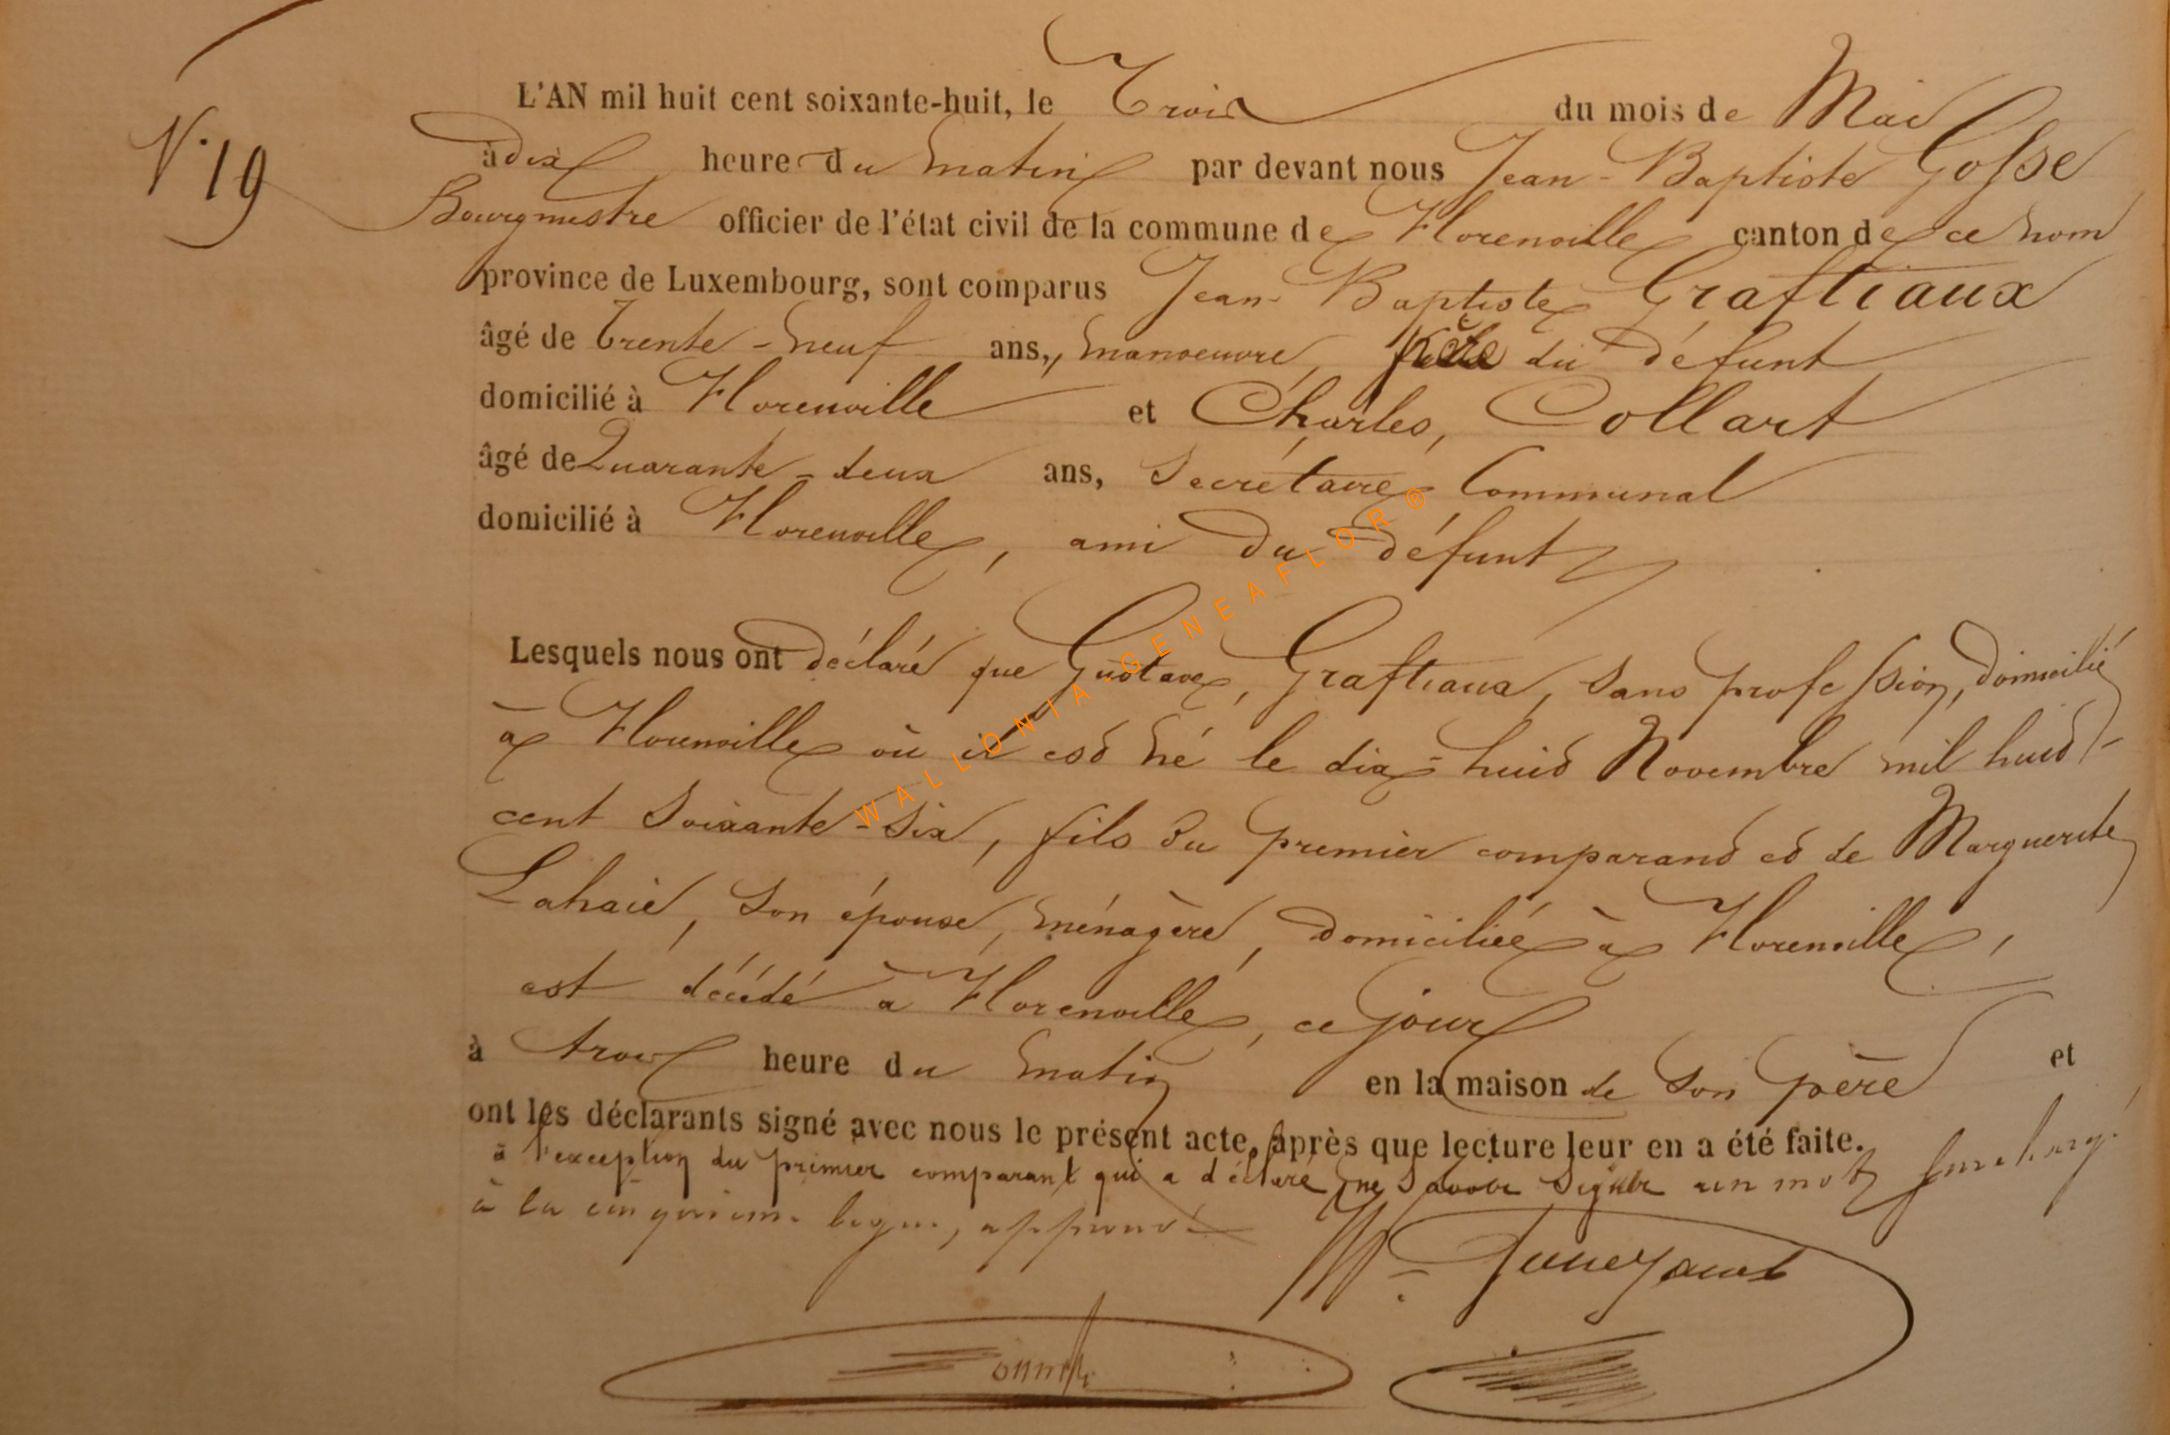 N.° 19
L'AN mil huit cent soixante-huit, le Trois du mois de Mai
à dix heure du matin par devant nous Jean-Baptiste Gosse
Bourgmestre officier de l'état civil de la commune de Florenville canton de ce nom
province de Luxembourg, sont comparus Jean-Baptiste Graftiaux
âgé de trente-neuf ans, manoeuvre, père du défunt
domicilié à Florenville et Charles, Collart
âgé de Quarante-deux ans, Secrétaire Communal
domicilié à Florenville, ami du défunt
Lesquels nous ont déclaré que Gustave, Graftiaux, sans profession, domicilié
à Florenville où il est né le dix-huit Novembre mil huit-
cent soixante-six, fils du premier comparant et de Marguerite
Lahaie, son épouse, ménagère, domiciliée à Florenville,
est décédé à Florenville, ce jour
à trois heure du matin en la maison de son père et
ont les déclarants signé avec nous le présent acte, après que lecture leur en a été faite.
à l'exception du premier comparant qui a déclaré ne savoir signer un mot surchargé
à la cinquième ligne, approuvé
WALLONIA-GENEAFLOR®